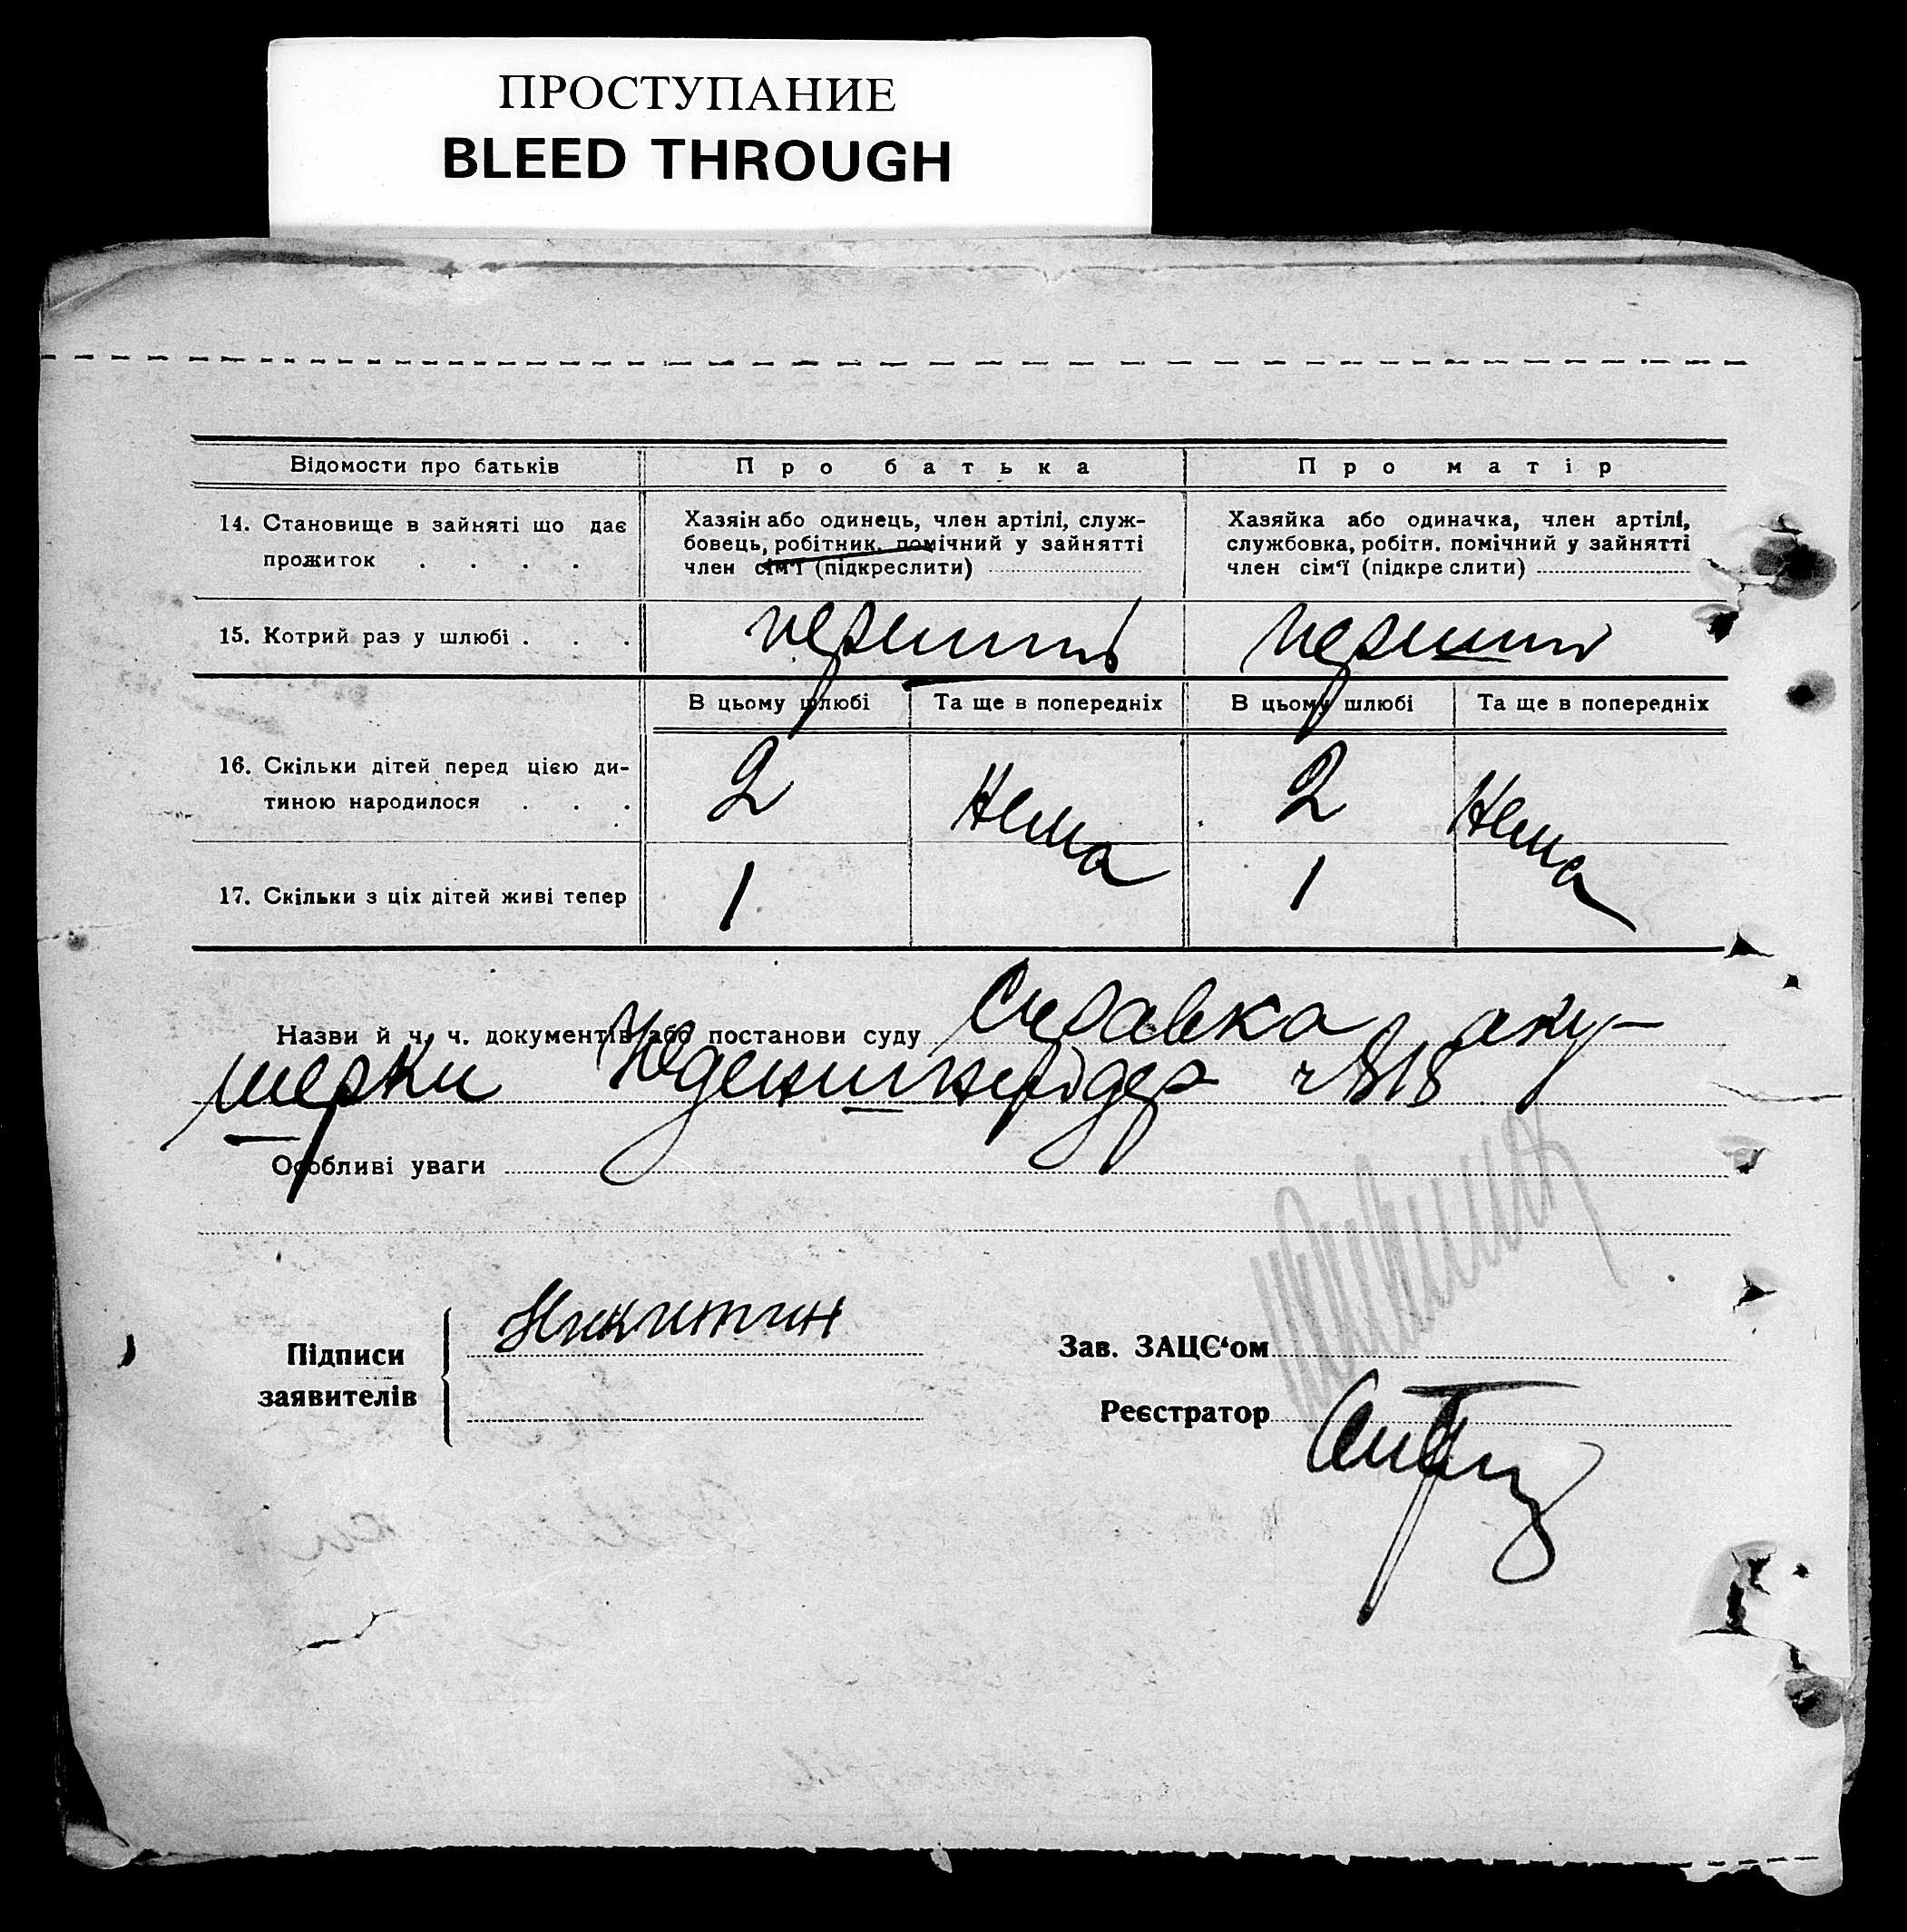 ПРОСТУПАНИЕ
BLEED THROUGH
Відомости про батьків
Про батька
Про матір
14. Становище в зайняті що дає
прожиток . . . .
Хазяін або одинець, член артілі, служ-
бовець, робітник. помічний у зайнятті
член сім'ї (підкреслити)
Хазяйка або одиначка, член артілі,
службовка, робітн. помічний у зайнятті
член сім'ї (підкреслити)
15. Котрий раз у шлюбі . . .
перший
перший
В цьому шлюбі
Та ще в попередніх
В цьому шлюбі
Та ще в попередніх
16. Скільки дітей перед цією ди-
тиною народилося . . .
2
Нема
2
Нема
17. Скільки з ціх дітей живі тепер
1
1
Назви й ч. ч. документів або постанови суду Справка аку-
шерки
Особливі уваги
Підписи
заявителів
Никитин
Зав. ЗАЦС'ом
Реєстратор